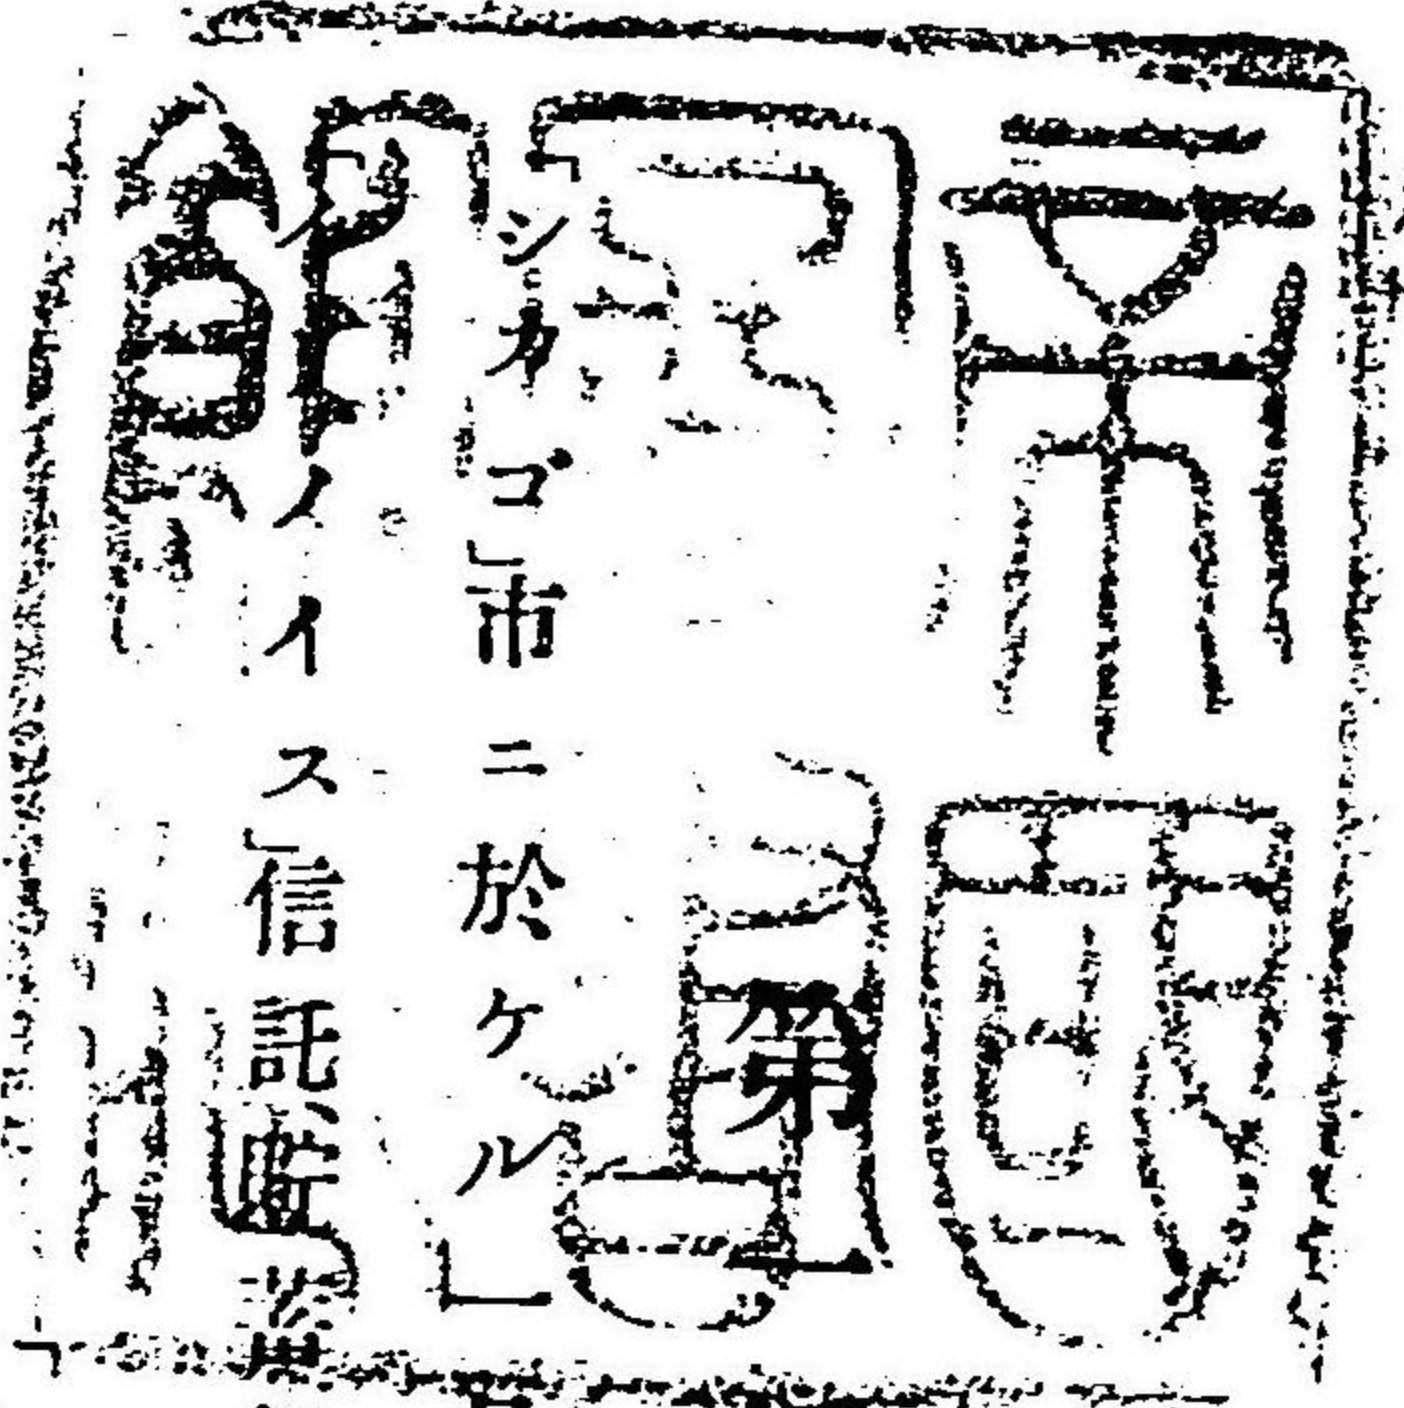 帝國
圖書
第一
「シカゴ」市ニ於ケル
「イリノイス」信託、貯蓄